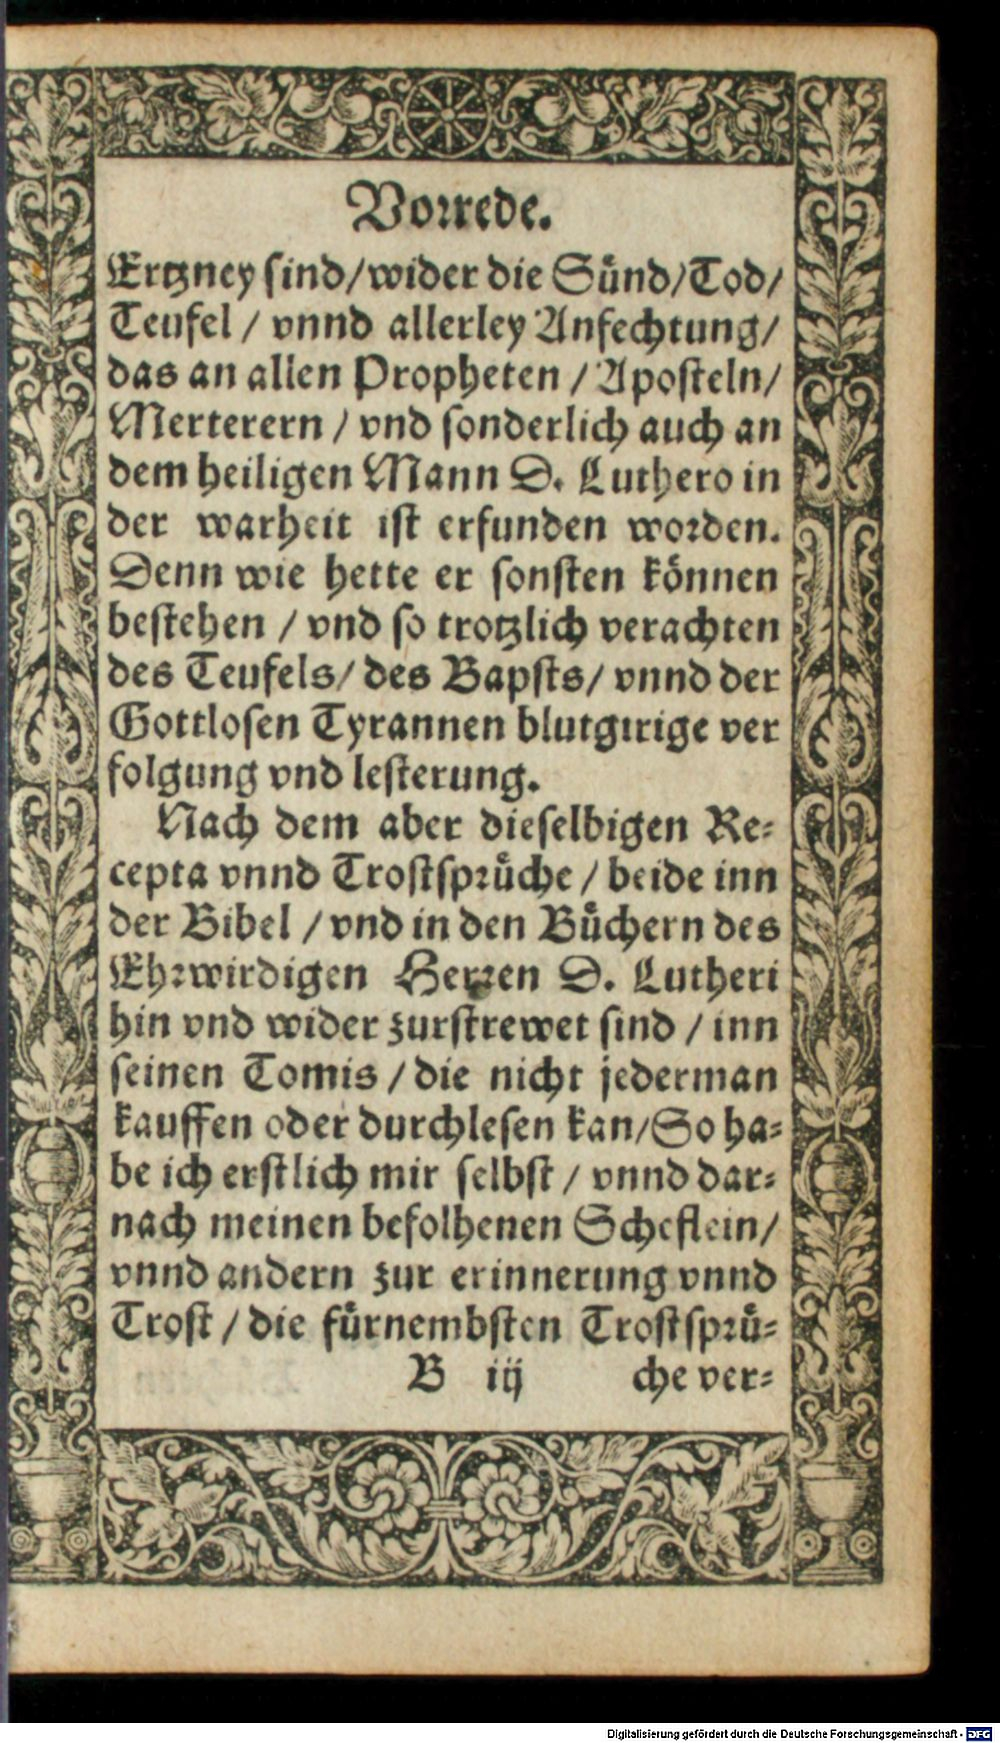 Vorrede.
Ertzney sind/wider die Suͤnd/Tod/
Teufel / vnnd allerley Anfechtung/
das an allen Propheten / Aposteln/
Merterern / vnd sonderlich auch an
dem heiligen Mann D. Luthero in
der warheit ist erfunden worden.
Denn wie hette er sonsten koͤnnen
bestehen / vnd so trotzlich verachten
des Teufels/ des Bapsts/ vnnd der
Gottlosen Tyrannen blutgirige ver
folgung vnd lesterung.
Nach dem aber dieselbigen Re-
cepta vnnd Trostspruͤche / beide inn
der Bibel / vnd in den Buͤchern des
Ehrwirdigen Herren D. Lutheri
hin vnd wider zurstrewet sind / inn
seinen Tomis / die nicht jederman
kauffen oder durchlesen kan/So ha-
be ich erstlich mir selbst / vnnd dar-
nach meinen befolhenen Scheflein/
vnnd andern zur erinnerung vnnd
Trost / die fuͤrnembsten Trostspruͤ-
B iij che ver-
Digitalisierung gefördert durch die Deutsche Forschungsgemeinschaft - DFG